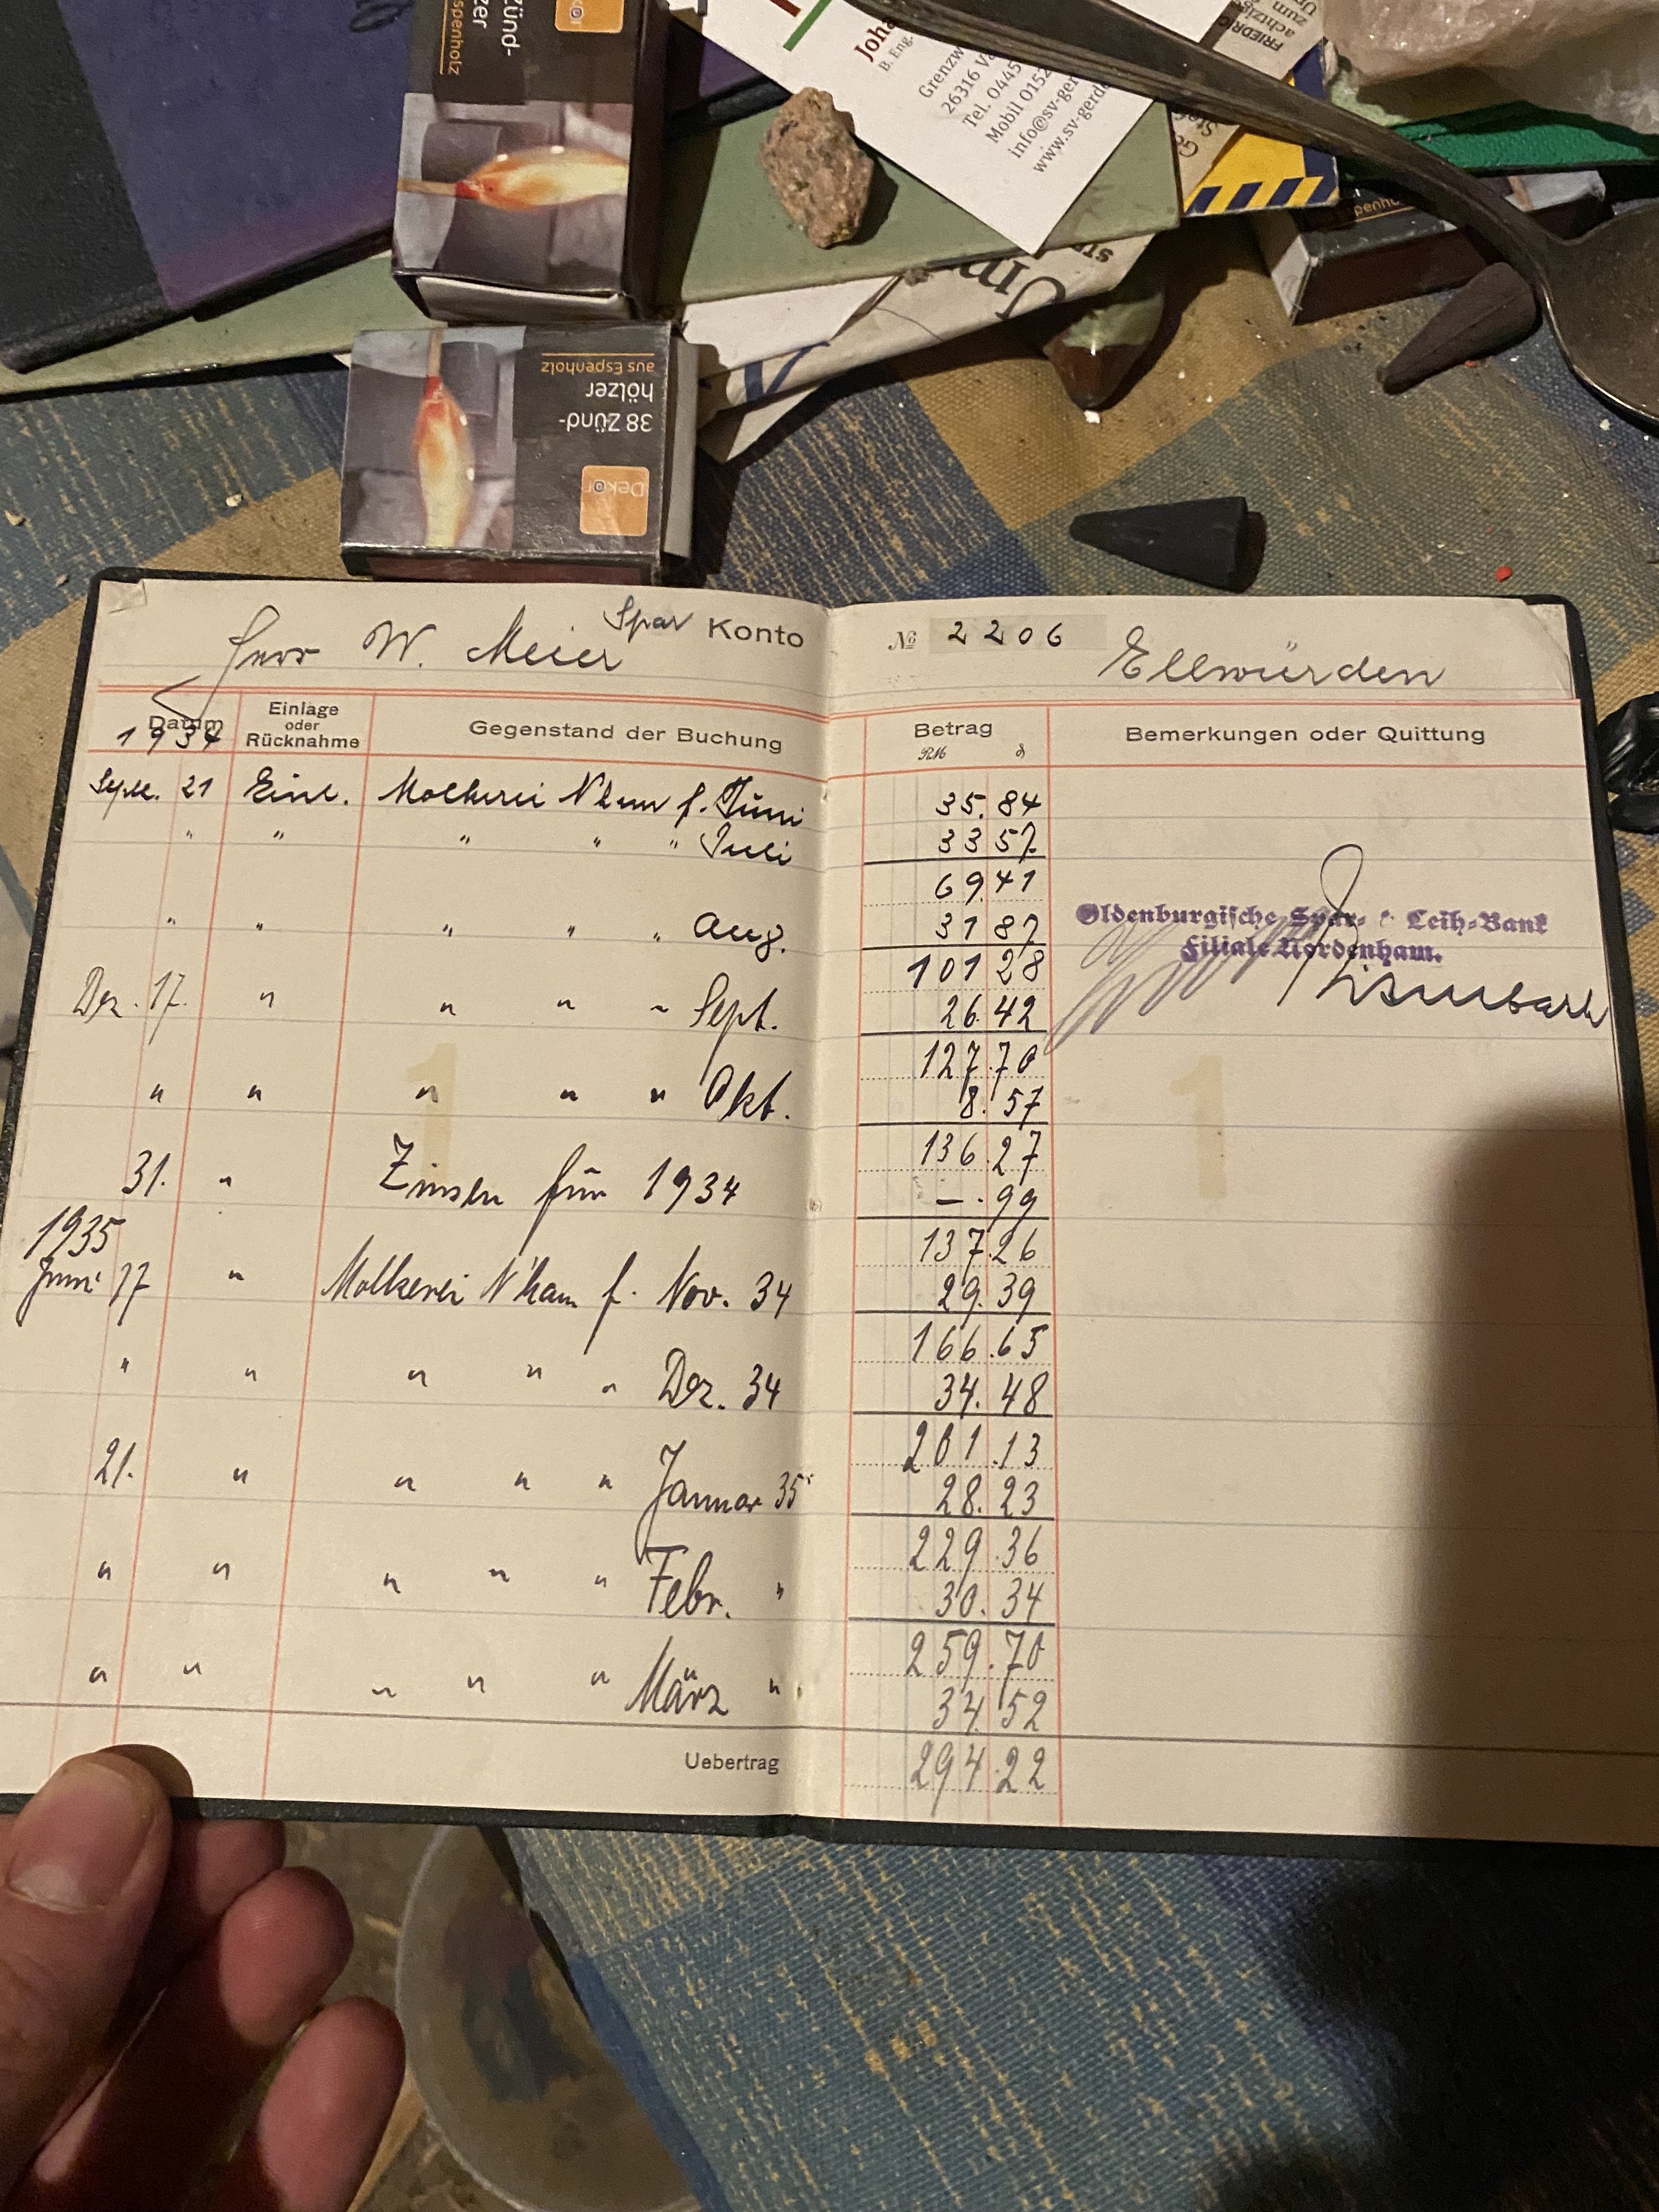 Zünd-
aus Espenholz
38 Zünd-
hölzer
aus Espenholz
Dekor
Joha
B. Eng.
Grenzw
26316 Va
Tel. 0445
Mobil 0152
info@sv-gerd
www.sv-gerd
FRIEDRI
Um
Spar Konto № 2206
Herr W. Meier Ellwürden
Datum Einlage oder Rücknahme Gegenstand der Buchung Betrag RM ₰ Bemerkungen oder Quittung
1934
Sept. 21 Einl. Molkerei N'ham f. Juni 35.84
" " " " " Juli 33 57
69.41
" " " " " Aug. 31 87
Oldenburgische Spar- & Leih-Bank
Filiale Nordenham.
101 28
Dez. 17. " " " " Sept. 26.42
127.70
" " " " " Okt. 8.57
136.27
31. " Zinsen für 1934 —.99
137.26
1935
Juni 17 " Molkerei N'ham f. Nov. 34 29.39
166.65
" " " " " Dez. 34 34.48
201.13
21. " " " " Januar 35 28.23
229.36
" " " " " Febr. " 30.34
259.70
" " " " " März " 34.52
Uebertrag 294.22